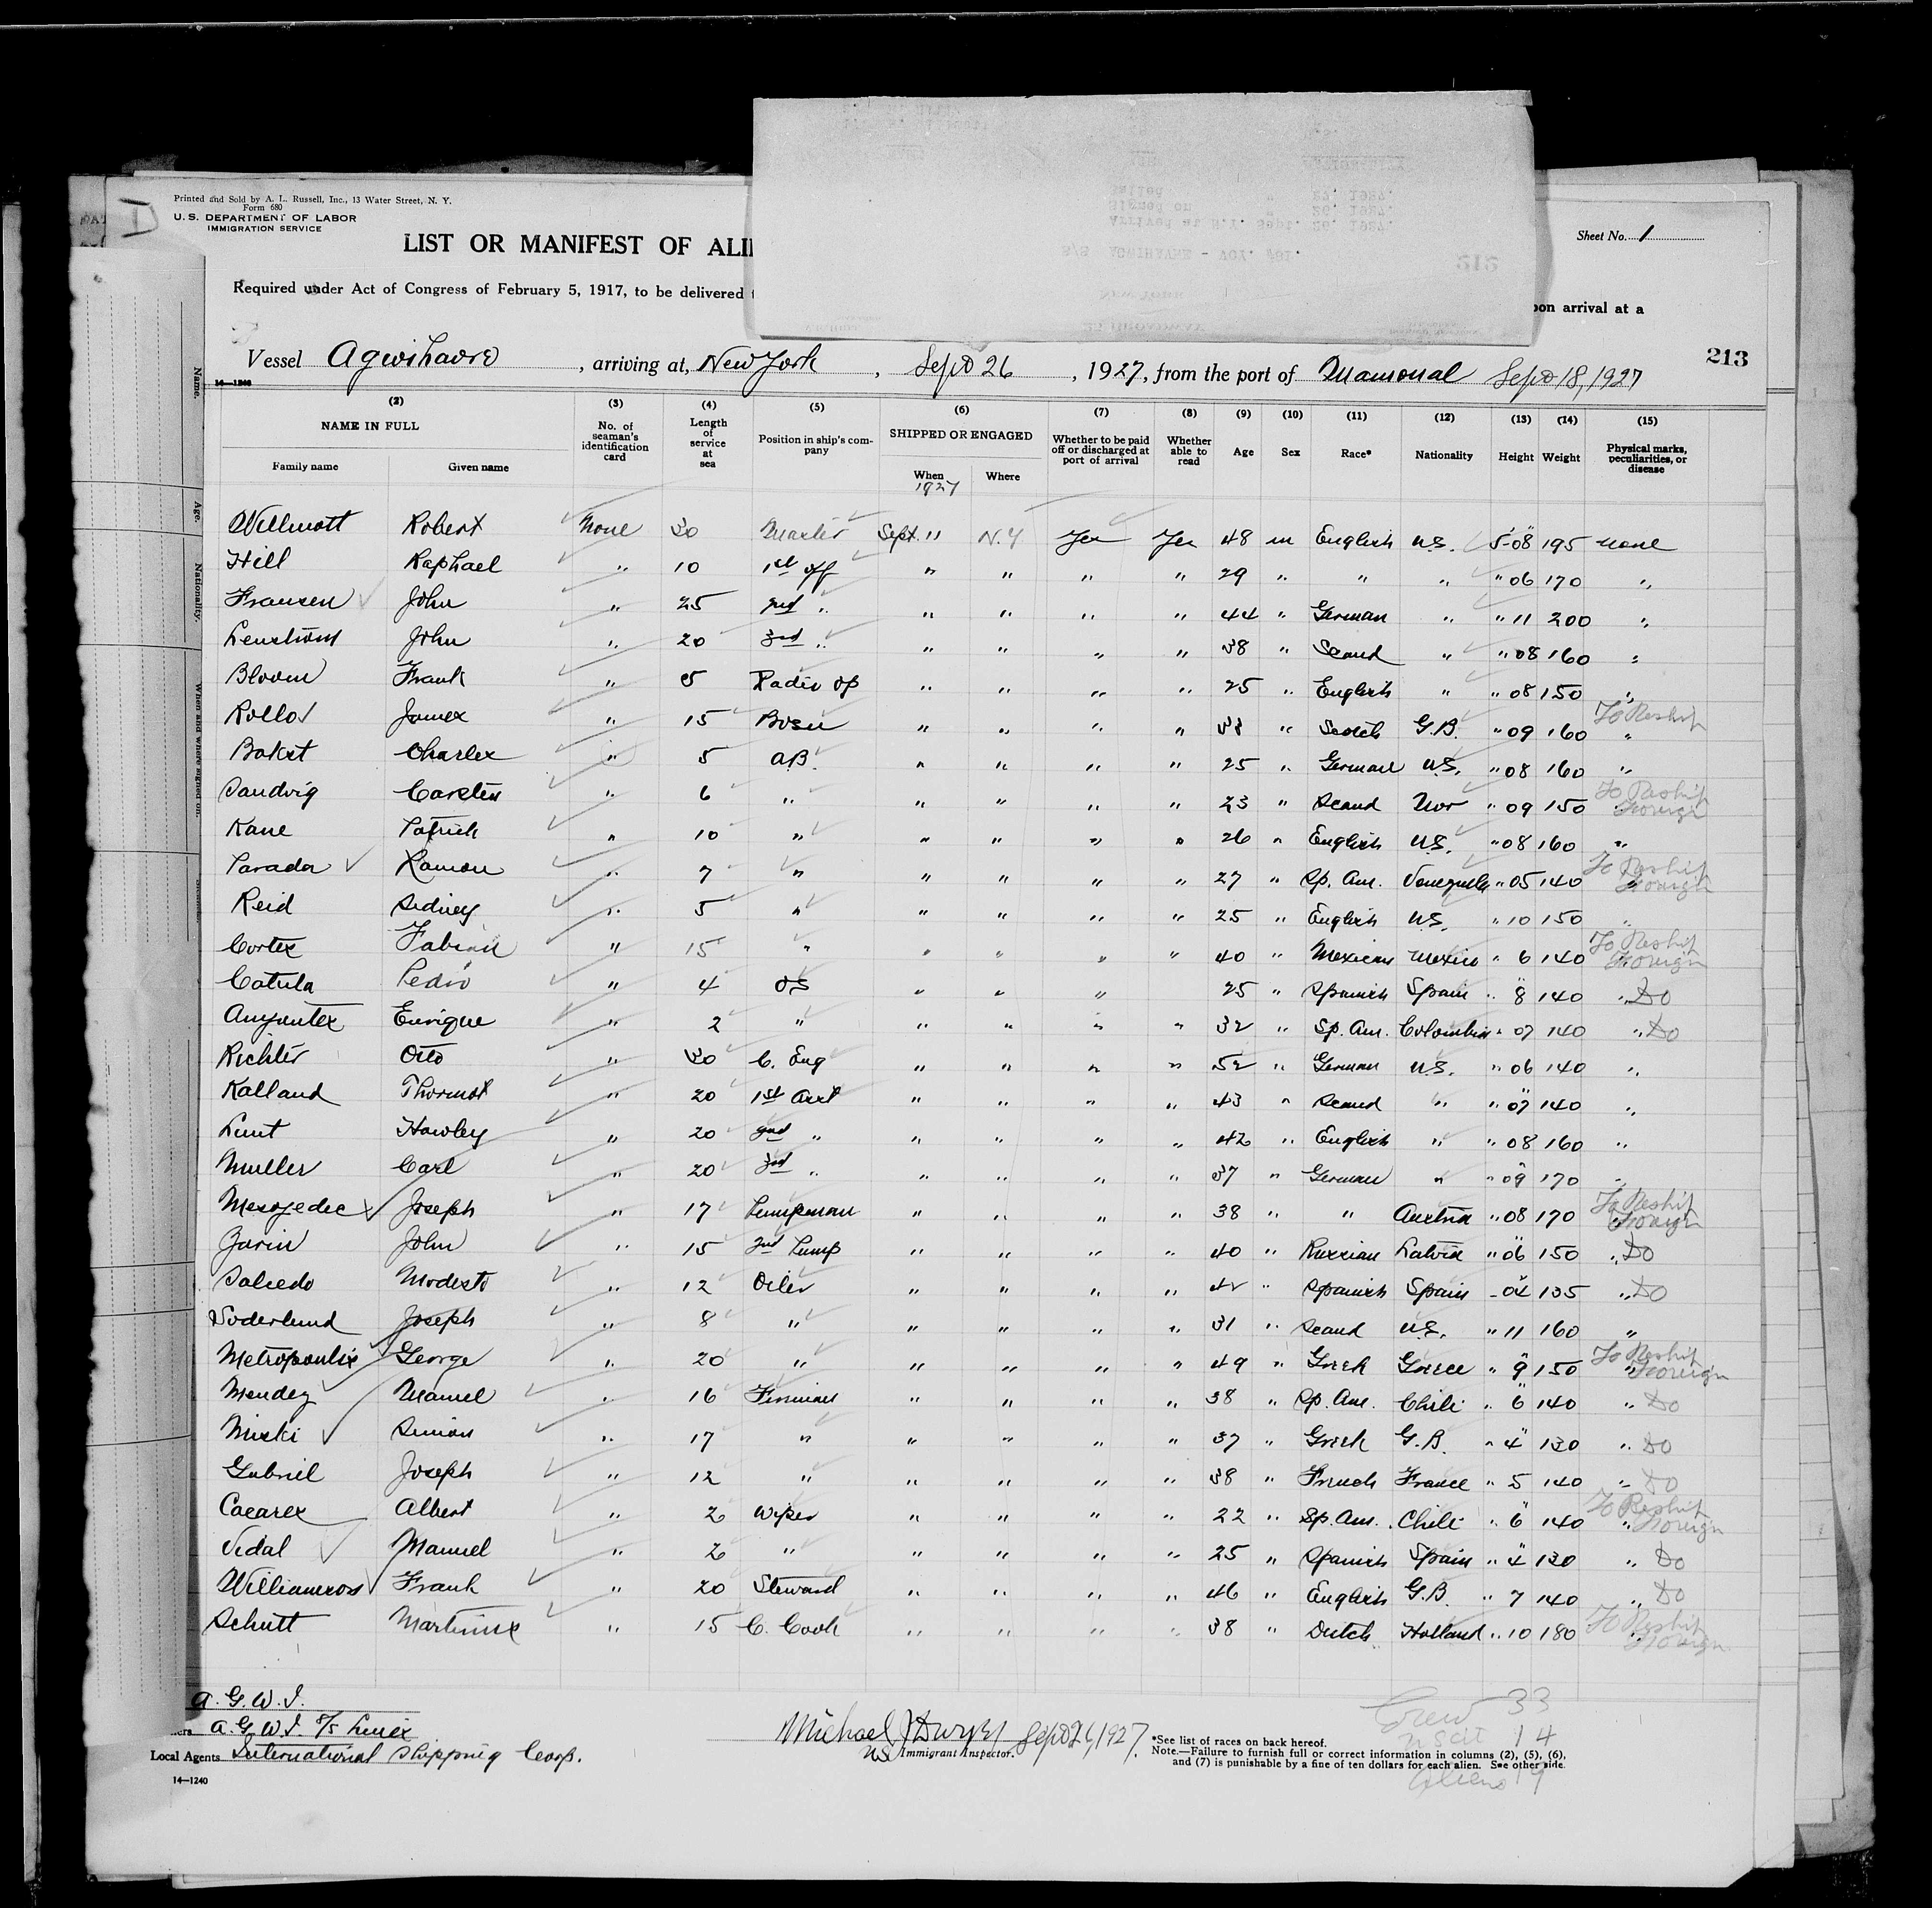 Printed and Sold by A. L. Russell, Inc., 13 Water Street, N. Y.
Form 680
U. S. DEPARTMENT OF LABOR
IMMIGRATION SERVICE
Sheet No. 1
LIST OR MANIFEST OF ALI
Required under Act of Congress of February 5, 1917, to be delivered
pon arrival at a
213
Vessel Agwihavre, arriving at, New York, Sept 26, 1927, from the port of Mamonal Sept 18, 1927
(2) (3) (4) (5) (6) (7) (8) (9) (10) (11) (12) (13) (14) (15)
NAME IN FULL No. of seaman's identification card Length of service at sea Position in ship's company SHIPPED OR ENGAGED Whether to be paid off or discharged at port of arrival Whether able to read Age Sex Race* Nationality Height Weight Physical marks, peculiarities, or disease
Family name Given name When 1927 Where
Willmott Robert None 30 Master Sept. 11 N.Y Yes Yes 48 m English U.S. 5-08 195 None
Hill Raphael " 10 1st off " " " " 29 " " " " 06 170 "
Fransen John " 25 2nd " " " " " 44 " German " " 11 200 "
Lenstrom John " 20 3rd " " " " " 38 " Scand " " 08 160 "
Bloom Frank " 5 Radio Op " " " " 25 " English " " 08 150 "
Rollo James " 15 Bosn " " " " 33 " Scotch G.B. " 09 160 " To Reship
Charles " 5 A.B. " " " " 25 " German U.S. " 08 160 "
Sandvig Carsten " 6 " " " " " 23 " Scand Nor " 09 150 To Reship Foreign
Kane Patrick " 10 " " " " " 26 " English U.S. " 08 160 "
Parada Ramon " 7 " " " " " 27 " Sp. Am. Venezuela " 05 140 " To Reship Foreign
Reid Sidney " 5 " " " " " 25 " English U.S. " 10 150 "
Cortex Fabian " 15 " " " " " 40 " Mexican Mexico " 6 140 " To Reship Foreign
Catula Pedro " 4 OS " " " 25 " Spanish Spain " 8 140 " Do
Enrique " 2 " " " " " 32 " Sp. Am. Colombia " 07 140 " Do
Richter Otto " 30 C. Eng " " " " 52 " German U.S. " 06 140 "
Kalland Thormot " 20 1st Asst " " " " 43 " Scand " " 07 140 "
Lunt Hawley " 20 2nd " " " " " 42 " English " " 08 160 "
Muller Carl " 20 3rd " " " " " 37 " German " " 09 170 "
Mesojedec Joseph " 17 Pumpman " " " " 38 " " Austria " 08 170 " To Reship Foreign
Zarin John " 15 2nd Pump " " " " 40 " Russian Latvia " 06 150 " Do
Salcedo Modesto " 12 Oiler " " " " 42 " Spanish Spain " 04 135 " Do
Soderlund Joseph " 8 " " " " " 31 " Scand U.S. " 11 160 "
Metropoulis George " 20 " " " " " 49 " Greek Greece " 9 150 " To Reship Foreign
Mendez Manuel " 16 Fireman " " " " 38 " Sp. Am. Chile " 6 140 " Do
Miski Simion " 17 " " " " " 37 " Greek G.B. " 4 130 " Do
Gabriel Joseph " 12 " " " " " 38 " French France " 5 140 " Do
Casares Albert " 2 Wiper " " " " 22 " Sp. Am. Chile " 6 140 " To Reship Foreign
Vidal Manuel " 2 " " " " " 25 " Spanish Spain " 4 130 " Do
Williamson Frank " 20 Steward " " " " 46 " English G.B. " 7 140 " Do
Schutt Martinus " 15 C. Cook " " " " 38 " Dutch Holland " 10 180 " To Reship Foreign
A. G. W. I.
A. G. W. I. S/S Lines
Local Agents International Shipping Corp.
14—1240
Michael J Dwyer Sept 26, 1927.
US Immigrant Inspector.
Crew 33
US Cit 14
Aliens 19
*See list of races on back hereof.
Note.—Failure to furnish full or correct information in columns (2), (5), (6), and (7) is punishable by a fine of ten dollars for each alien. See other side.